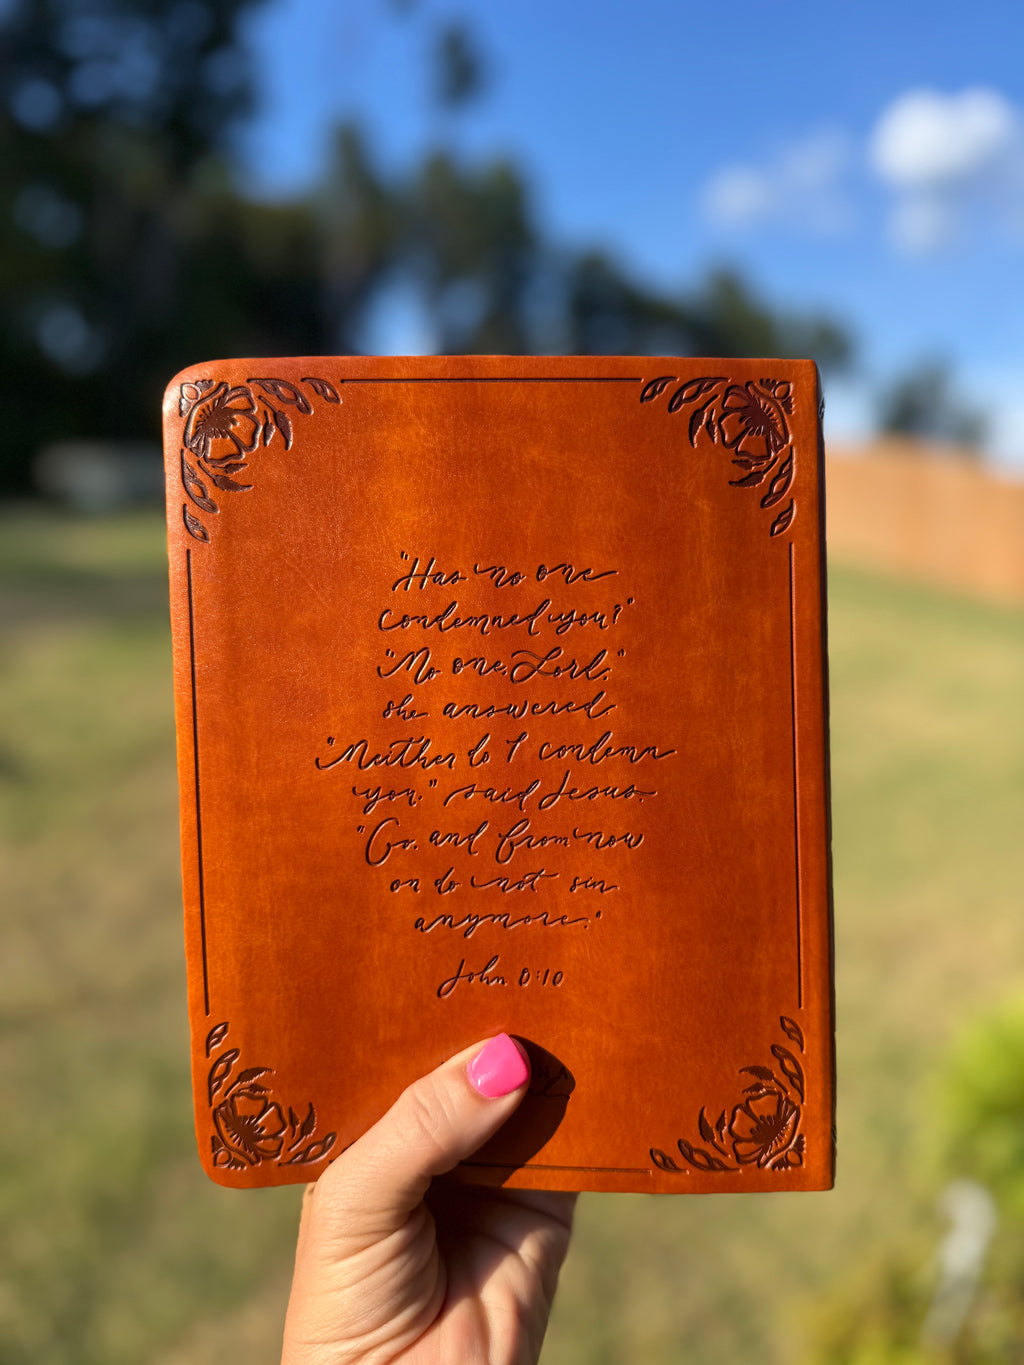 "Has no one
condemned you?"
"No one, Lord,"
she answered.
"Neither do I condemn
you," said Jesus.
"Go, and from now
on do not sin
anymore."
John 8:10